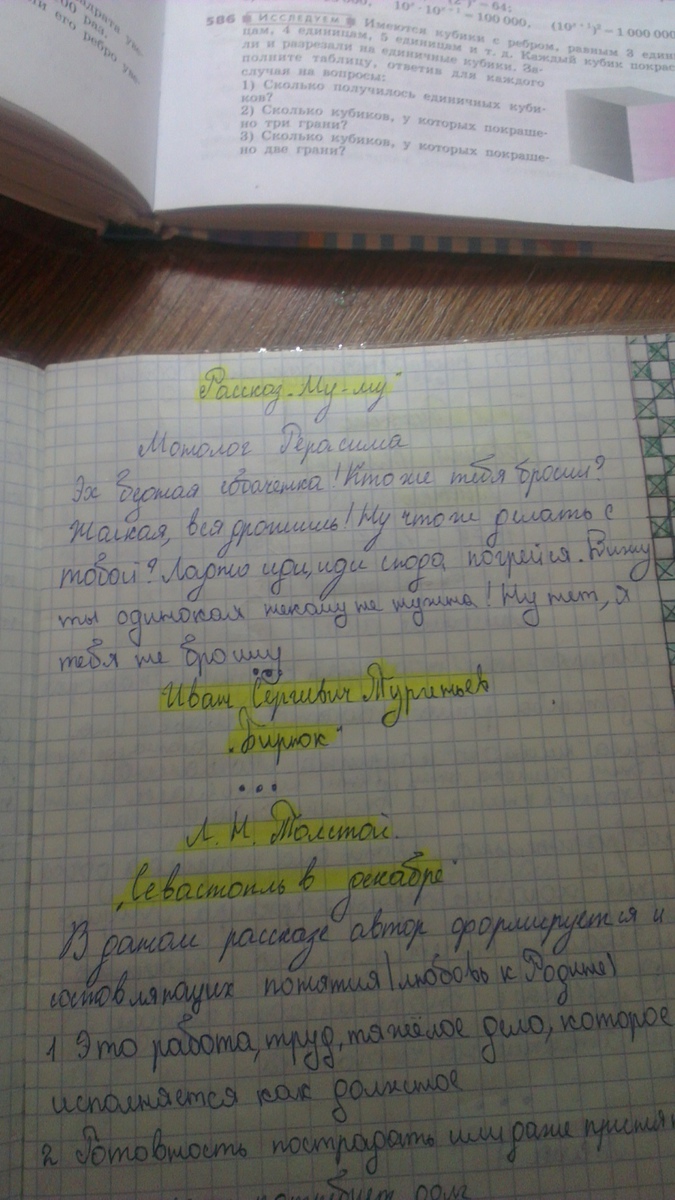 драта уве-
100 раз.
его ребро уве-
10ˣ · 10ˣ⁺¹ = 100 000, (10ˣ⁺¹)² = 1 000 000
= 64;
586 ИССЛЕДУЕМ Имеются кубики с ребром, равным 3 едини-
цам, 4 единицам, 5 единицам и т. д. Каждый кубик покрас-
ли и разрезали на единичные кубики. За-
полните таблицу, ответив для каждого
случая на вопросы:
1) Сколько получилось единичных куби-
ков?
2) Сколько кубиков, у которых покраше-
но три грани?
3) Сколько кубиков, у которых покраше-
но две грани?
Рассказ „Му-му"
Монолог Герасима
Эх бедная собаченка! Кто же тебя бросил?
Жалкая, вся дрожишь! Ну что же делать с
тобой? Ладно иди, иди сюда, погрейся. Вижу
ты одинокая некому не нужна! Ну нет, я
тебя не брошу
...
Иван Сергивич Тургеньев
„Бирюк"
...
Л. Н. Толстой.
„Севастопль в декабре"
В даном рассказе автор формируется и
состовляющих понятия (любовь к Родине)
1 Это работа, труд, тяжёлое дело, которое
исполняется как должное
2 Готовность пострадать или даже
долг